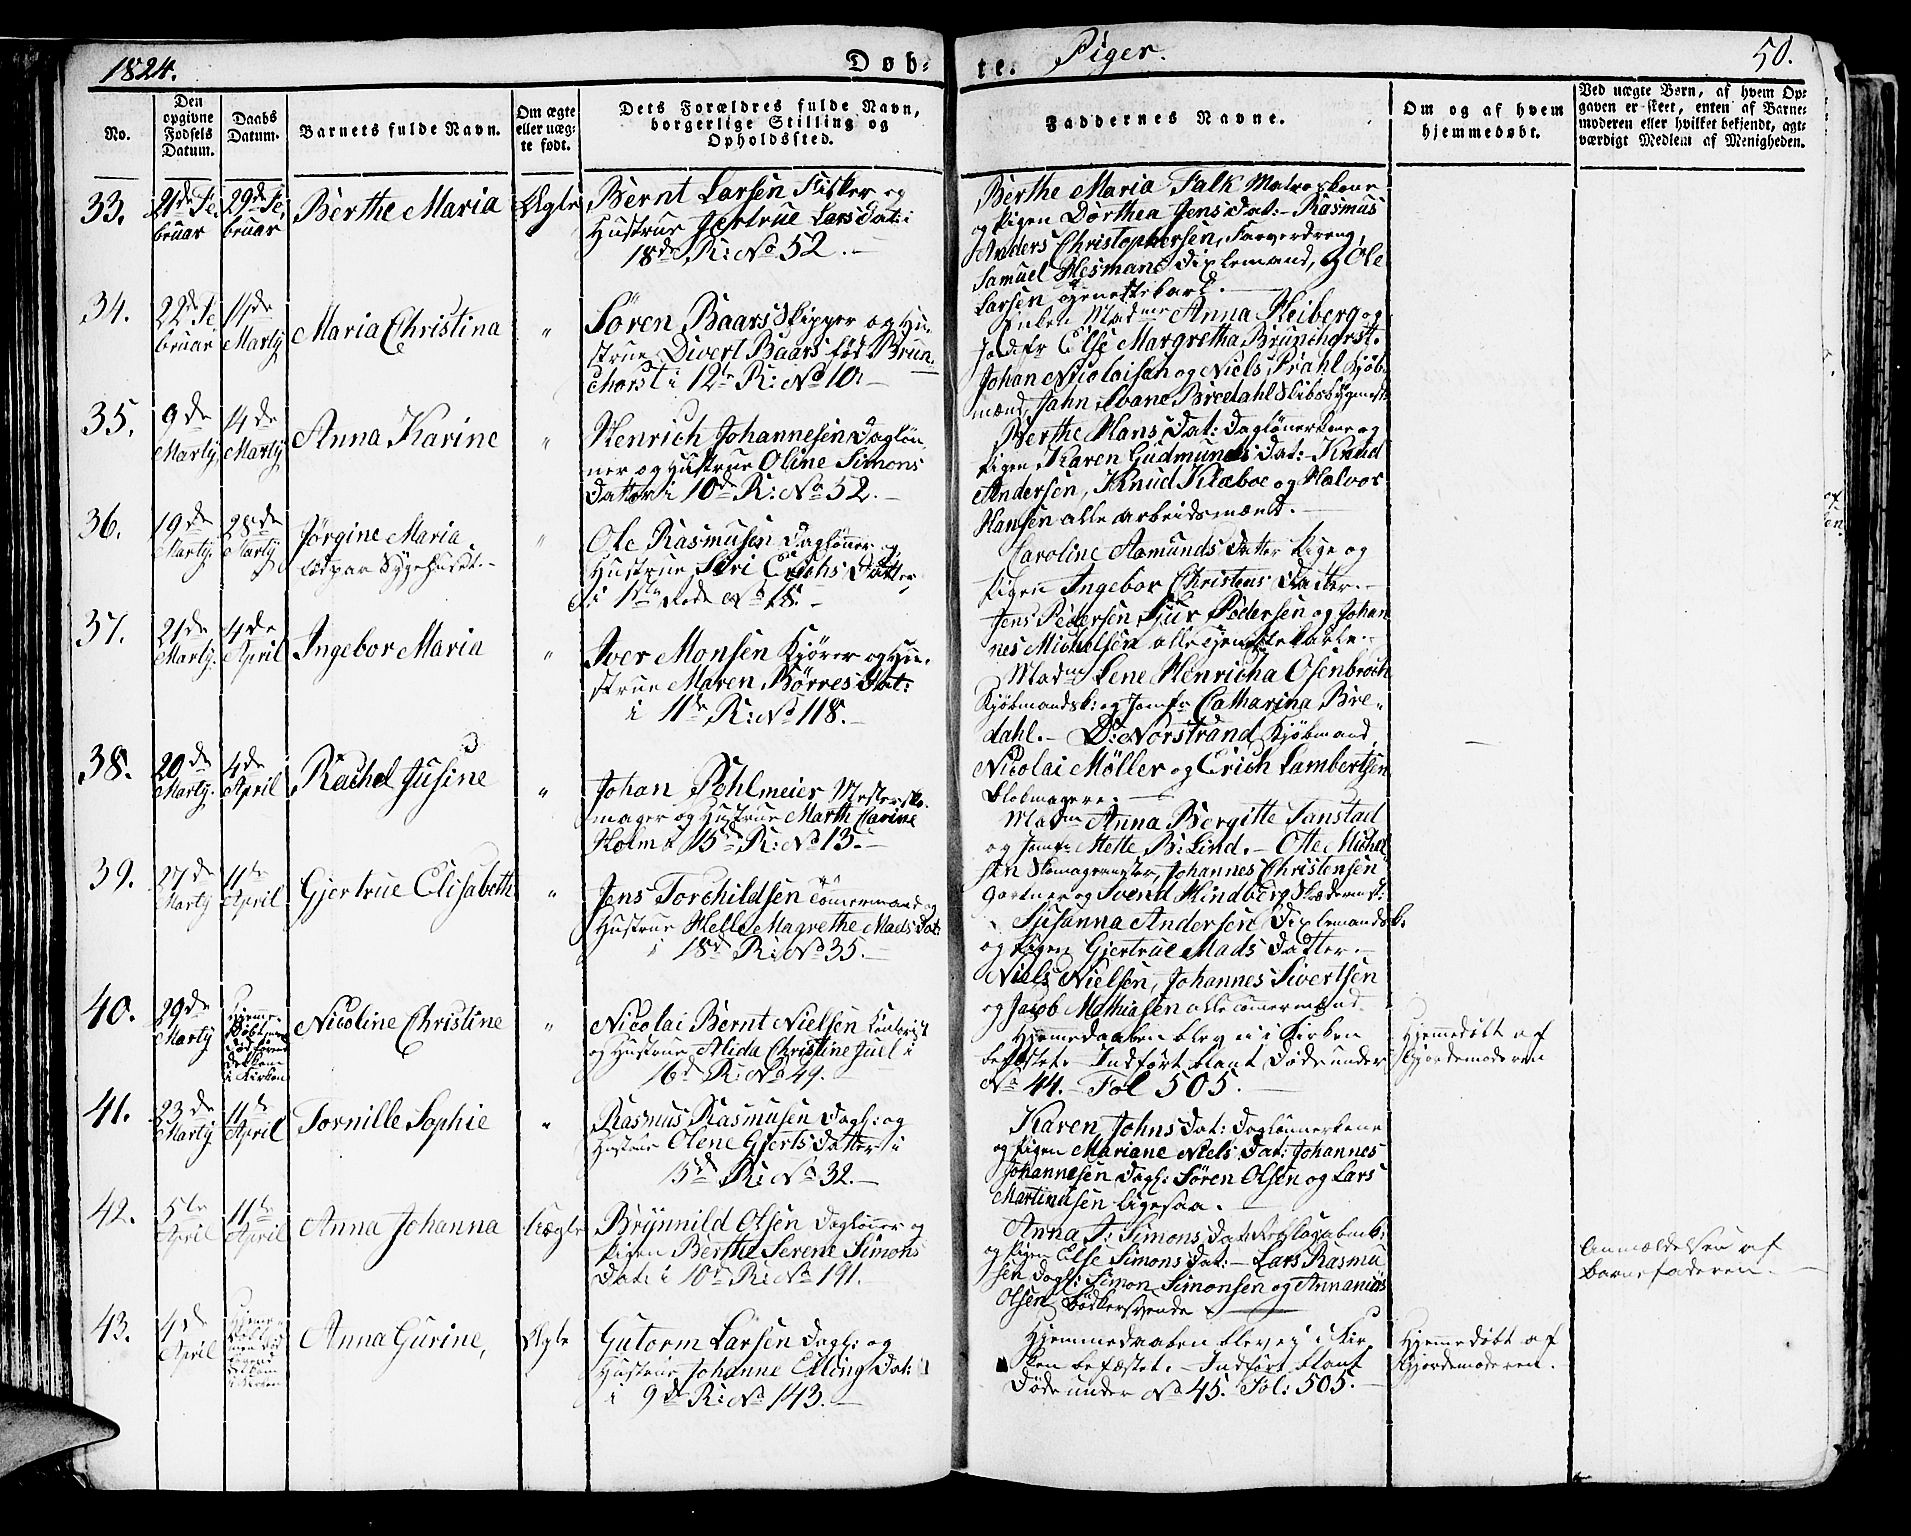 1824.
Døb-
te. Piger.
50.
No.
Den
opgivne
Fødsels
Datum.
Daabs
Datum.
Barnets fulde Navn.
Om ægte
eller uæg-
te født.
Dets Forældres fulde Navn,
borgerlige Stilling og
Opholdssted.
Faddernes Navne.
Om og af hvem
hjemmedøbt.
Ved uægte Børn, af hvem Op-
gaven er skeet, enten af Barne-
moderen eller hvilket bekjendt, agt-
værdigt Medlem af Menigheden.
33.
21de Fe-
bruar
29de Fe-
bruar
Berthe Maria
Ægte
Bernt Larsen Fisker og
Hustrue Gjertrue Lars Dat: i
18de R: No 52.
Berthe Maria Falk Matroskone
og Pigen Dorthea Jens Dat: - Rasmus
Anders Christophersen, Farverdreng,
Samuel Hesmans Diplemand, og Ole
Larsen tjenestekarl.
34.
22de Fe
bruar
Marty
Maria Christina
"
Søren Baars Skipper og Hu-
strue Divert Baars fød Brun-
chorst i 12te R: No 10
Enken Madme Anna Heiberg og
Jomfr Else Margretha Brunchorst.
Johan Nicolaisen og Niels Prahl Kjøb-
mænd, Jahn Svane Bredahl Skibsbygmest:
35.
9de
Marty
14de
Marty
Anna Karine
"
Henrich Johannesen Dagløn
ner og Hustrue Oline Simons
Datter i 10de R: No 52.
Berthe Hans Dat: Daglønerkone og
Pigen Karen Gudmunds Dat: - Knud
Andersen, Knud Klæboe og Halvor
Hansen alle arbeidsmænd.
36.
19de
Marty.
28de
Marty
Jørgine Maria.
fød paa Sygehuset. -
"
Ole Rasmusen Dagløner og
Hustrue Siri Erichs Datter
i 1ste Rode No 18. -
Caroline Aamunds Datter Pige og
Pigen Ingebor Christens Datter. -
Jens Pedersen, Sjur Pedersen og Johan
nes Michelsen alle tjenestekarle. -
37.
21de
Marty.
4de
April
Ingebor Maria
"
Iver Monsen Kjører og Hu-
strue Maren Børres Dat:
i 11de R: No 118.
Madme Lene Henricha Osenbroch
Kjøbmandsk: og Jomfr Catharina Bre-
dahl. - D: Norstrand Kjøbmand,
Nicolai Møller og Erich Lambertsen
Blokmagere.
38.
20de
Marty.
4de
April
Rachel Jusine
"
Johan Pohlmeier Mestersko-
mager og Hustrue Marth Carine
Holm i 15de R: No 13.
Madme Anna Bergitte Tanstad
og Jomfr Mette B: Lind. - Otte Michel
sen Skomagermester, Johannes Christensen
Gartner og Svend Hindberg Skræderm:
39.
27de
Marty
11te
April
Gjertrue Elisabeth
"
Jens Torchildsen Tømermand og
Hustrue Helle Magrethe Mads Dat:
i 18de R: No 35. -
Susanna Andersen Diplemandsk:
og Pigen Gjertrue Mads Datter -
Niels Nielsen, Johannes Sivertsen
og Jacob Mathiasen alle tømermænd
40.
29de
Marty
Hjemme-
døbt men
død førend
i Kirken
Nicoline Christine
"
Nicolai Bernt Nielsen Kontorist
og Hustrue Alida Christine Juel i
16de R: No 49. -
Hjemmedaaben blev ei i Kirken
befæstet. Indført blant Døde under
No 44. - Fol 505.
Hjemmedøbt af
Gjordemoderen
41.
23de
Marty
11te
April
Tornille Sophie
"
Rasmus Rasmusen Dagl: og
Hustrue Olene Gjerts Datter i
13de R: No 32. -
Karen Johns Dat: Daglønnerkone
og Pigen Mariane Niels Dat: Johannes
Johannesen Dagl: Søren Olsen og Lars
Martinusen ligesaa.
42.
5te
April
11te
April
Anna Johanna
Uægte
Brynnild Olsen Dagløner og
Pigen Berthe Serene Simons
Dat: i 10de R: No 191.
Anna T: Simons Dat:
og Pigen Else Simons Dat: - Lars Rasmu
sen Dagl: Simon Simonsen og Annanias
Olsen Bødkersvende
Anmældelsen af
Barnefaderen.
43.
4de
April
Anna Gurine,
Ægte
Gutorm Larsen Dagl: og
Hustrue Johanne Elling Dat:
i 9de R: No 143.
Hjemmedaaben blev ej i Kir
ken befæstet. - Indført blant
Døde under No 45. Fol: 505.
Hjemmedøbt af
Gjordemoderen.